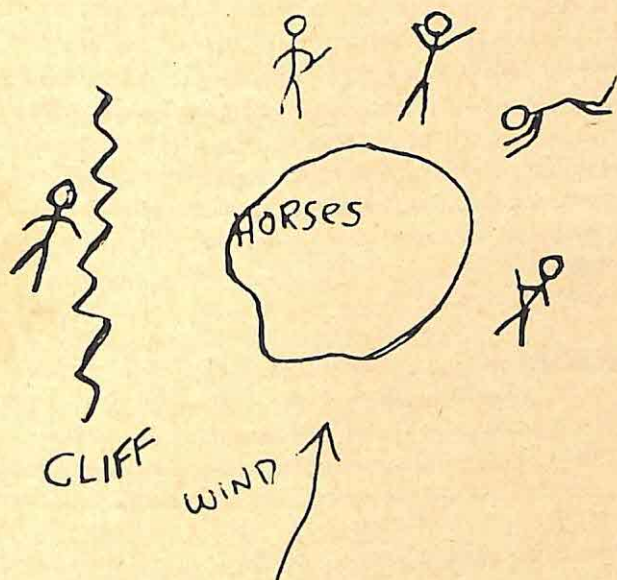 HORSES
CLIFF
WIND